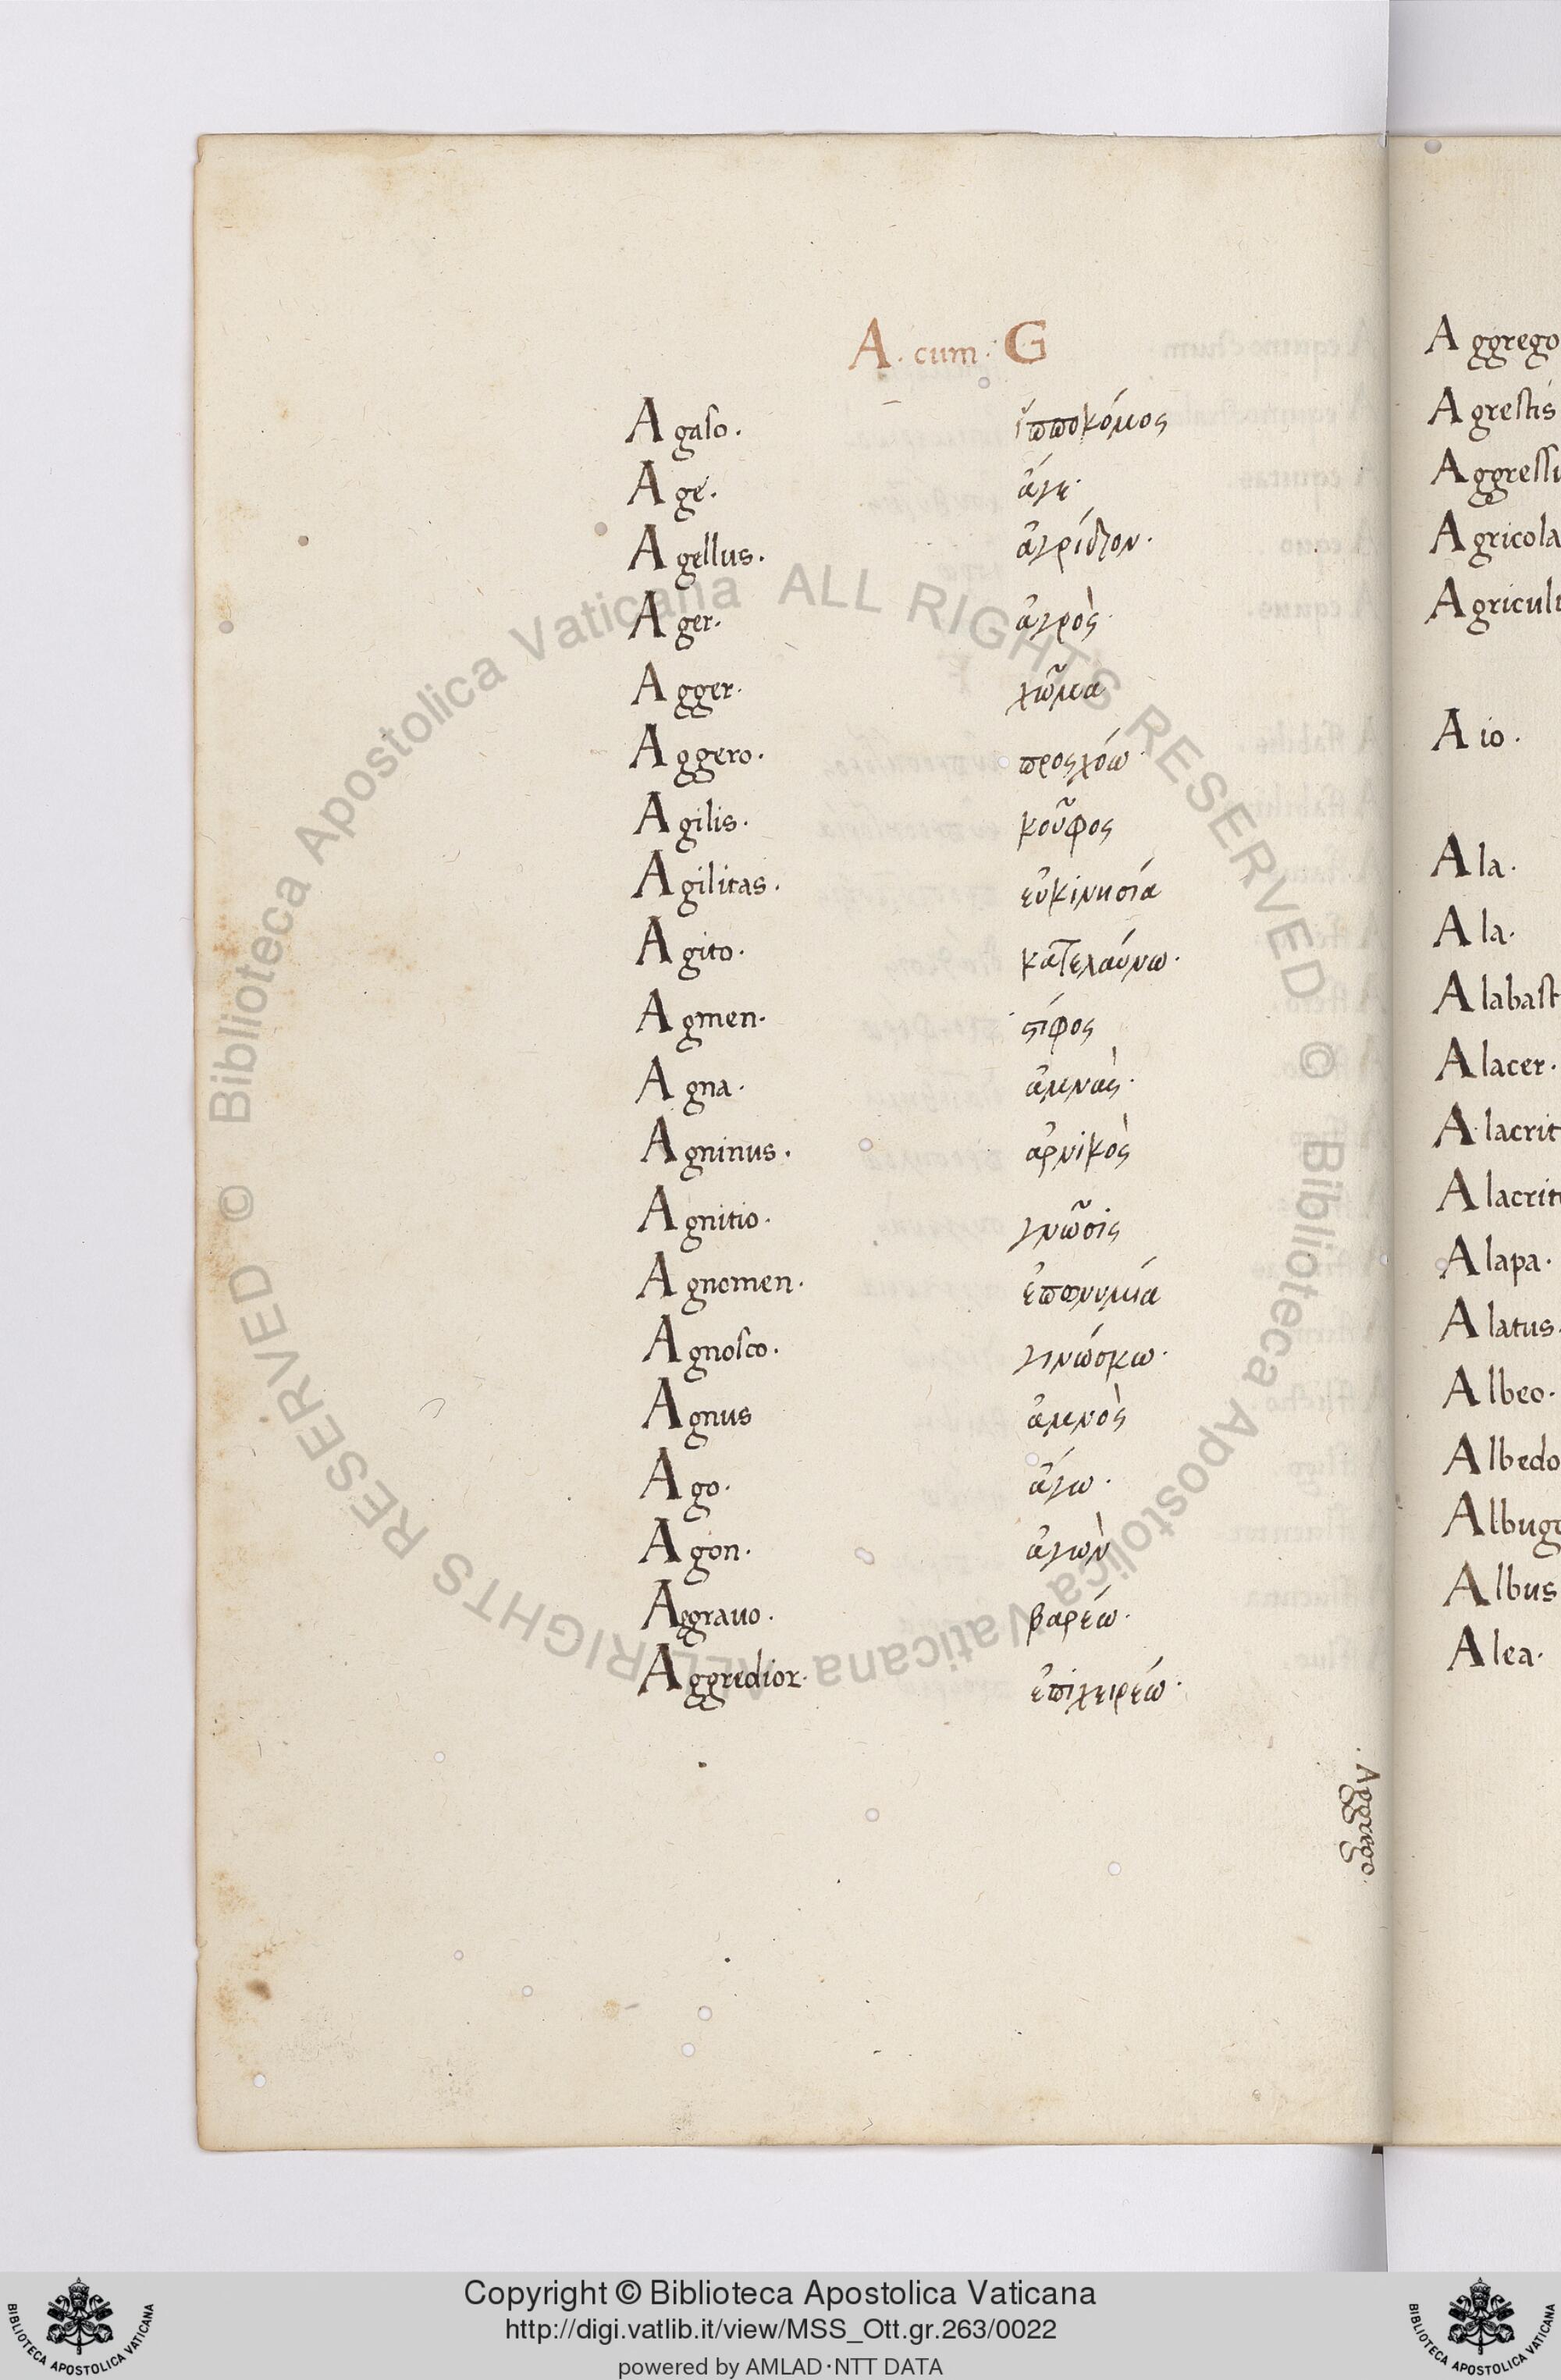 A. cum. G
Agaso. ἱπποκόμος
Age. ἄγε.
Agellus. ἀγρίδιον.
Ager. ἀγρὸς.
Agger. χῶμα
Aggero. προςχόω.
Agilis. κοῦφος
Agilitas. εὐκινησία
Agito. κατελαύνω.
Agmen. στίφος
Agna. ἀμνὰς.
Agninus. ἀρνικὸς
Agnitio. γνῶσις
Agnomen. ἐπωνυμία
Agnosco. γινώσκω.
Agnus ἀμνὸς
Ago. ἄγω.
Agon. ἀγὼν
Aggrauo. βαρέω.
Aggredior. ἐπιχειρέω.
. Aggrego.
Aggrego
Agrestis
Aggressi
Agricola
Agricult
Aio.
Ala.
Ala.
Alabast
Alacer.
Alacrit
Alacrit
Alapa.
Alatus.
Albeo.
Albedo
Albugo
Albus
Alea.
© Biblioteca Apostolica Vaticana ALL RIGHTS RESERVED © Biblioteca Apostolica Vaticana ALL RIGHTS RESERVED
Copyright © Biblioteca Apostolica Vaticana
http://digi.vatlib.it/view/MSS_Ott.gr.263/0022
powered by AMLAD·NTT DATA
BIBLIOTECA APOSTOLICA VATICANA
BIBLIOTECA APOSTOLICA VATICANA